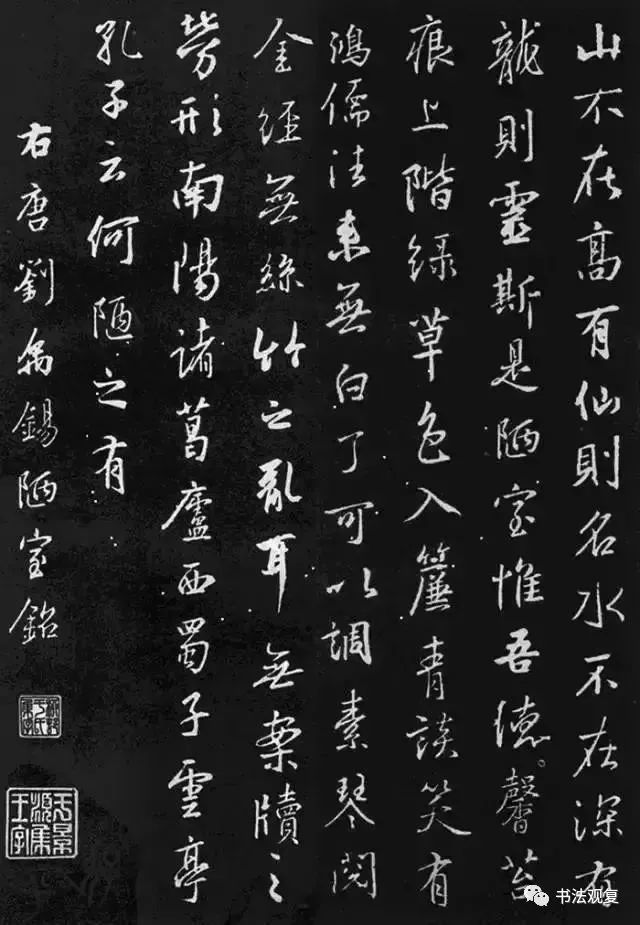 山不在高有仙則名水不在深有
龍則靈斯是陋室惟吾德馨苔
痕上階綠草色入簾青談笑有
鴻儒往來無白丁可以調素琴閱
金經無絲竹之亂耳無案牘之
勞形南陽諸葛廬西蜀子雲亭
孔子云何陋之有
右唐劉禹錫陋室銘
书法观复